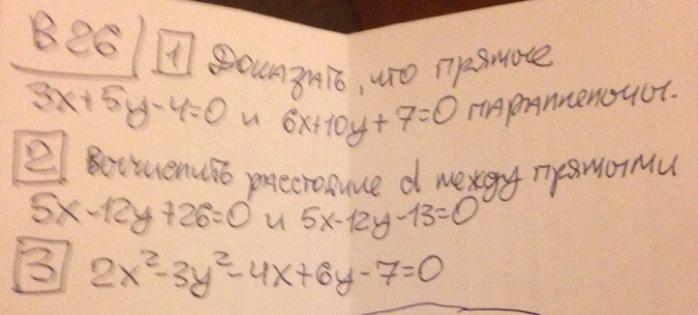 В 26 1 Доказать, что прямые
3x+5y-4=0 и 6x+10y+7=0 параллельны.
2 Вычислить расстояние d между прямыми
5x-12y+26=0 и 5x-12y-13=0
3 2x²-3y²-4x+6y-7=0